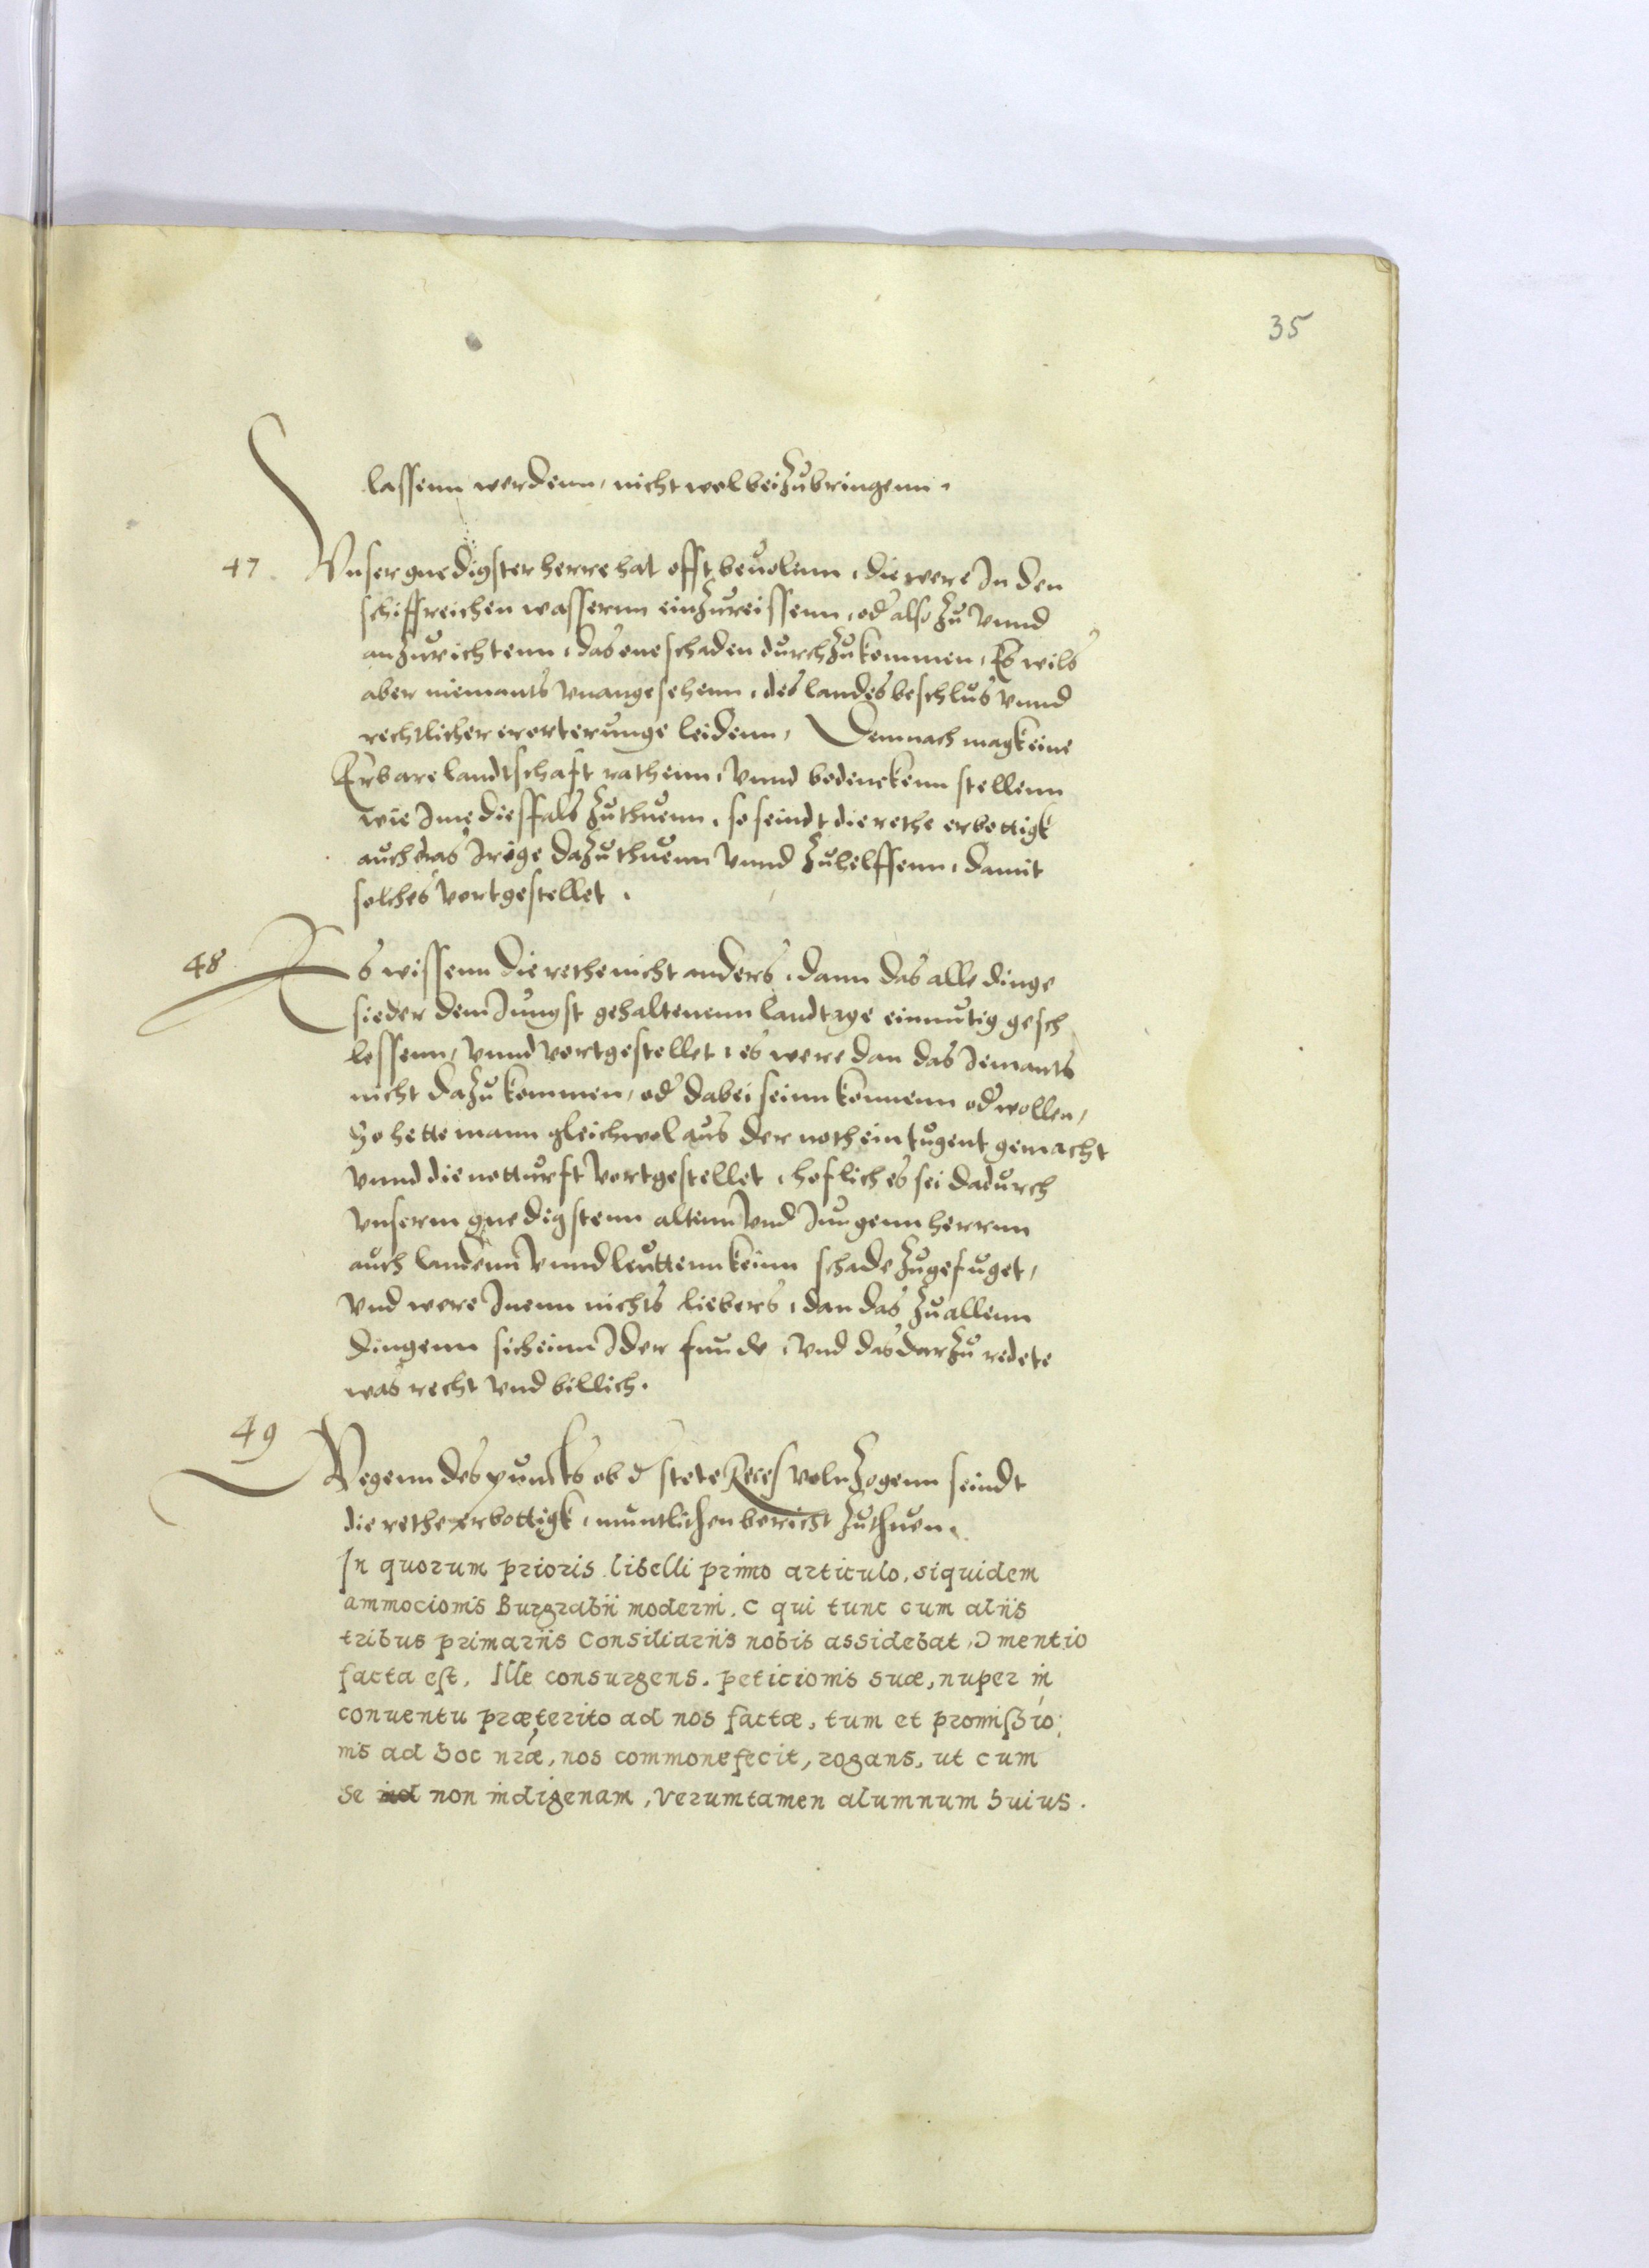 35
lassenn werdenn, nicht wol beizubringenn.
47. Vnser gnedigster herre hat offt beuolenn, die were In den
schiffreichen wasserenn einzureissenn, od also zu vnnd
anzurichtenn, das one schaden durchzukommen, Es wils
aber niemants vnangesehenn, des landes beschlus vnnd
rechtlicher erorterunge leidenn, Demnach magk eine
Erbare landtschaft rathenn, vnnd bedenckenn stellenn
wie Ime diesfals zuthuenn, so seindt die rethe erbottigk
auch das Irige dazu thuenn vnnd zuhelffenn, damit
solches vortgestellet.
48 Es wissenn die rethe nicht anders, dann das alle dinge
sieder dem Jungst gehaltenenn landtage einmutig gesch
lossenn, vnnd vortgestellet, es were dan das Iemants
nicht dazu kommen, od dabei seinn konnenn od wollen,
So hette mann gleichwol aus der noth ein tugent gemacht
vnnd die notturft vortgestellet, hoflich es sei dadurch
vnserm gnedigstenn altenn vnd Jungenn herrnn
auch landenn vnnd leuttenn keinn schade zugefuget,
vnd were Inenn nichts liebers, dan das zu allenn
dingenn sich einn Ider funde, vnd das darzu redete
was recht vnd billich.
49 Wegenn des puncts ob d stete Reces volnzogenn seindt
die rethe erbottigk, muntlichen bericht zuthuen.
In quorum prioris libelli primo articulo, siquidem
ammocionis Burgrabii moderni. C qui tunc cum aliis
tribus primariis Consiliariis nobis assidebat, Ɔ mentio
facta est. Ille consurgens. peticionis suæ, nuper in
conuentu præterito ad nos factæ, tum et promißio:
nis ad hoc nræ, nos commonefecit, rogans, ut cum
se non indigenam, verumtamen alumnum huius.